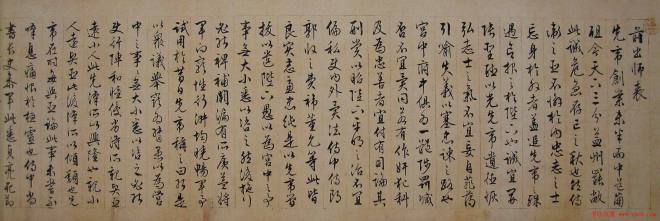 前出師表
先帝創業未半而中道崩
殂今天下三分益州罷敝
此誠危急存亡之秋也然侍
衛之臣不懈於內忠志之士
忘身於外者蓋追先帝之殊
遇欲報之於陛下也誠宜開
張聖聽以光先帝遺德恢
弘志士之氣不宜妄自菲薄
引喻失義以塞忠諫之路也
宮中府中俱為一體陟罰臧
否不宜異同若有作奸犯科
及為忠善者宜付有司論其
刑賞以昭陛下平明之治不宜
偏私使內外異法侍中侍郎
郭攸之費禕董允等此皆
良實志慮忠純是以先帝簡
拔以遺陛下愚以為宮中之事
事無大小悉以咨之然後施行
必能裨補闕漏有所廣益將
軍向寵性行淑均曉暢軍事
試用於昔日先帝稱之曰能是
以眾議舉寵為督愚以為營
中之事事無大小悉以咨之必能
使行陣和睦優劣得所也親賢臣
遠小人此先漢所以興隆也親小
人遠賢臣此後漢所以傾頹也先
帝在時每與臣論此事未嘗不
嘆息痛恨於桓靈也侍中尚
書長史參軍此悉貞亮死節